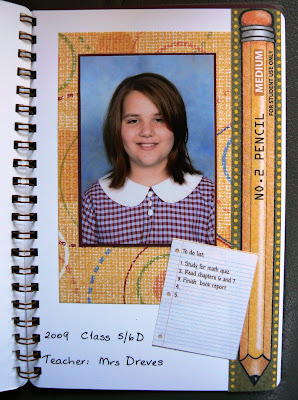 NO:2 PENCIL
MEDIUM
FOR STUDENT USE ONLY
To do list:
1. Study for math quiz
2. Read chapters 6 and 7
3. Finish book report
4.
5.
2009 Class 5/6D
Teacher: Mrs Dreves